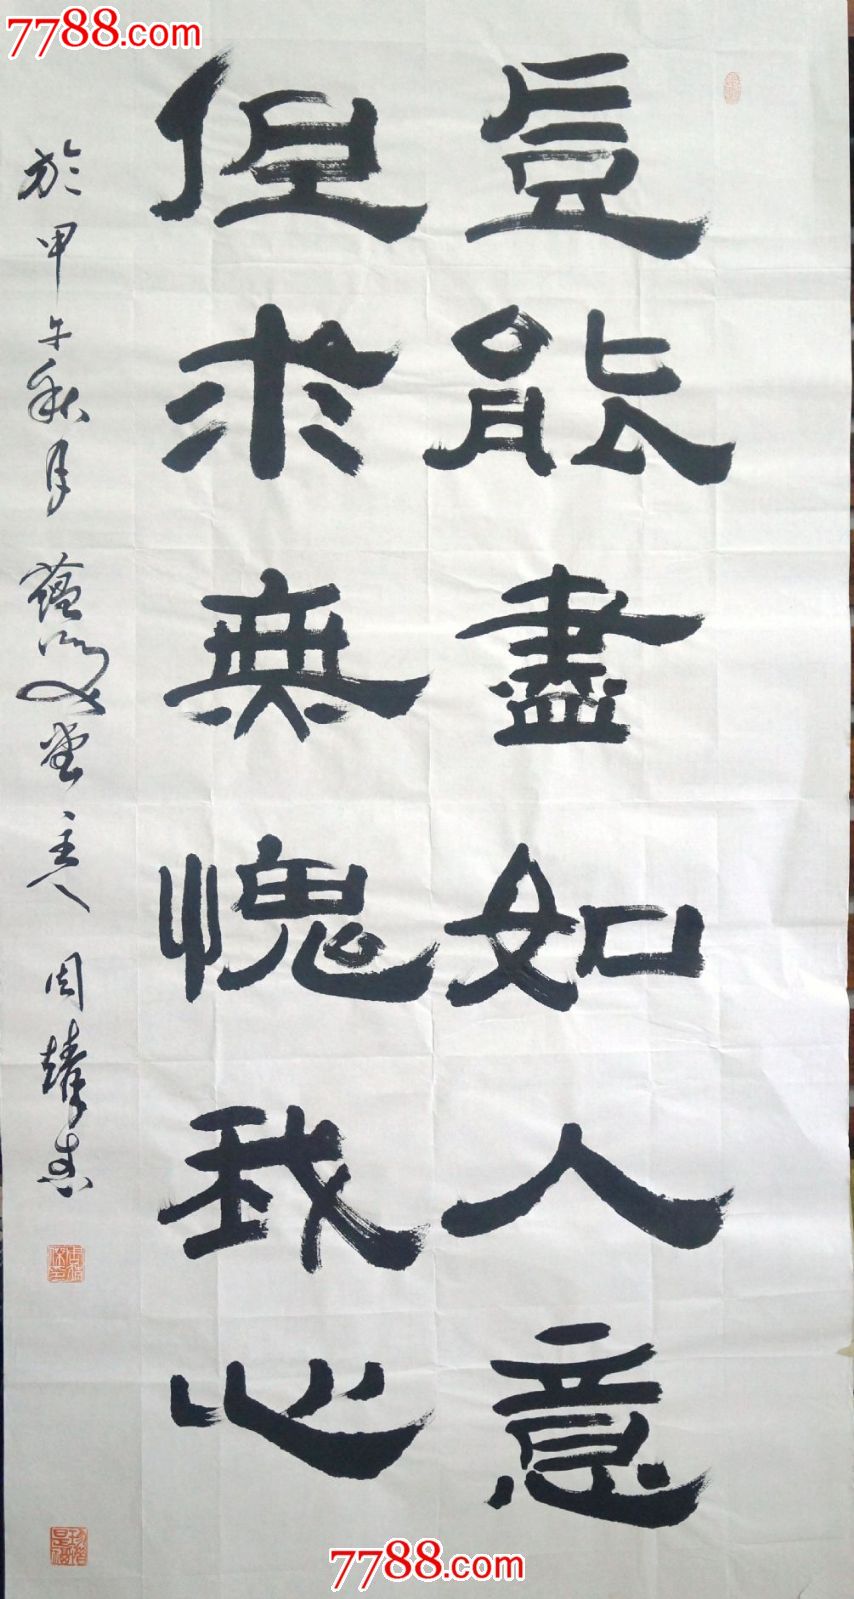 7788.com
豈能盡如人意
但求無愧我心
於甲午秋月蘊 堂主人周
7788.com